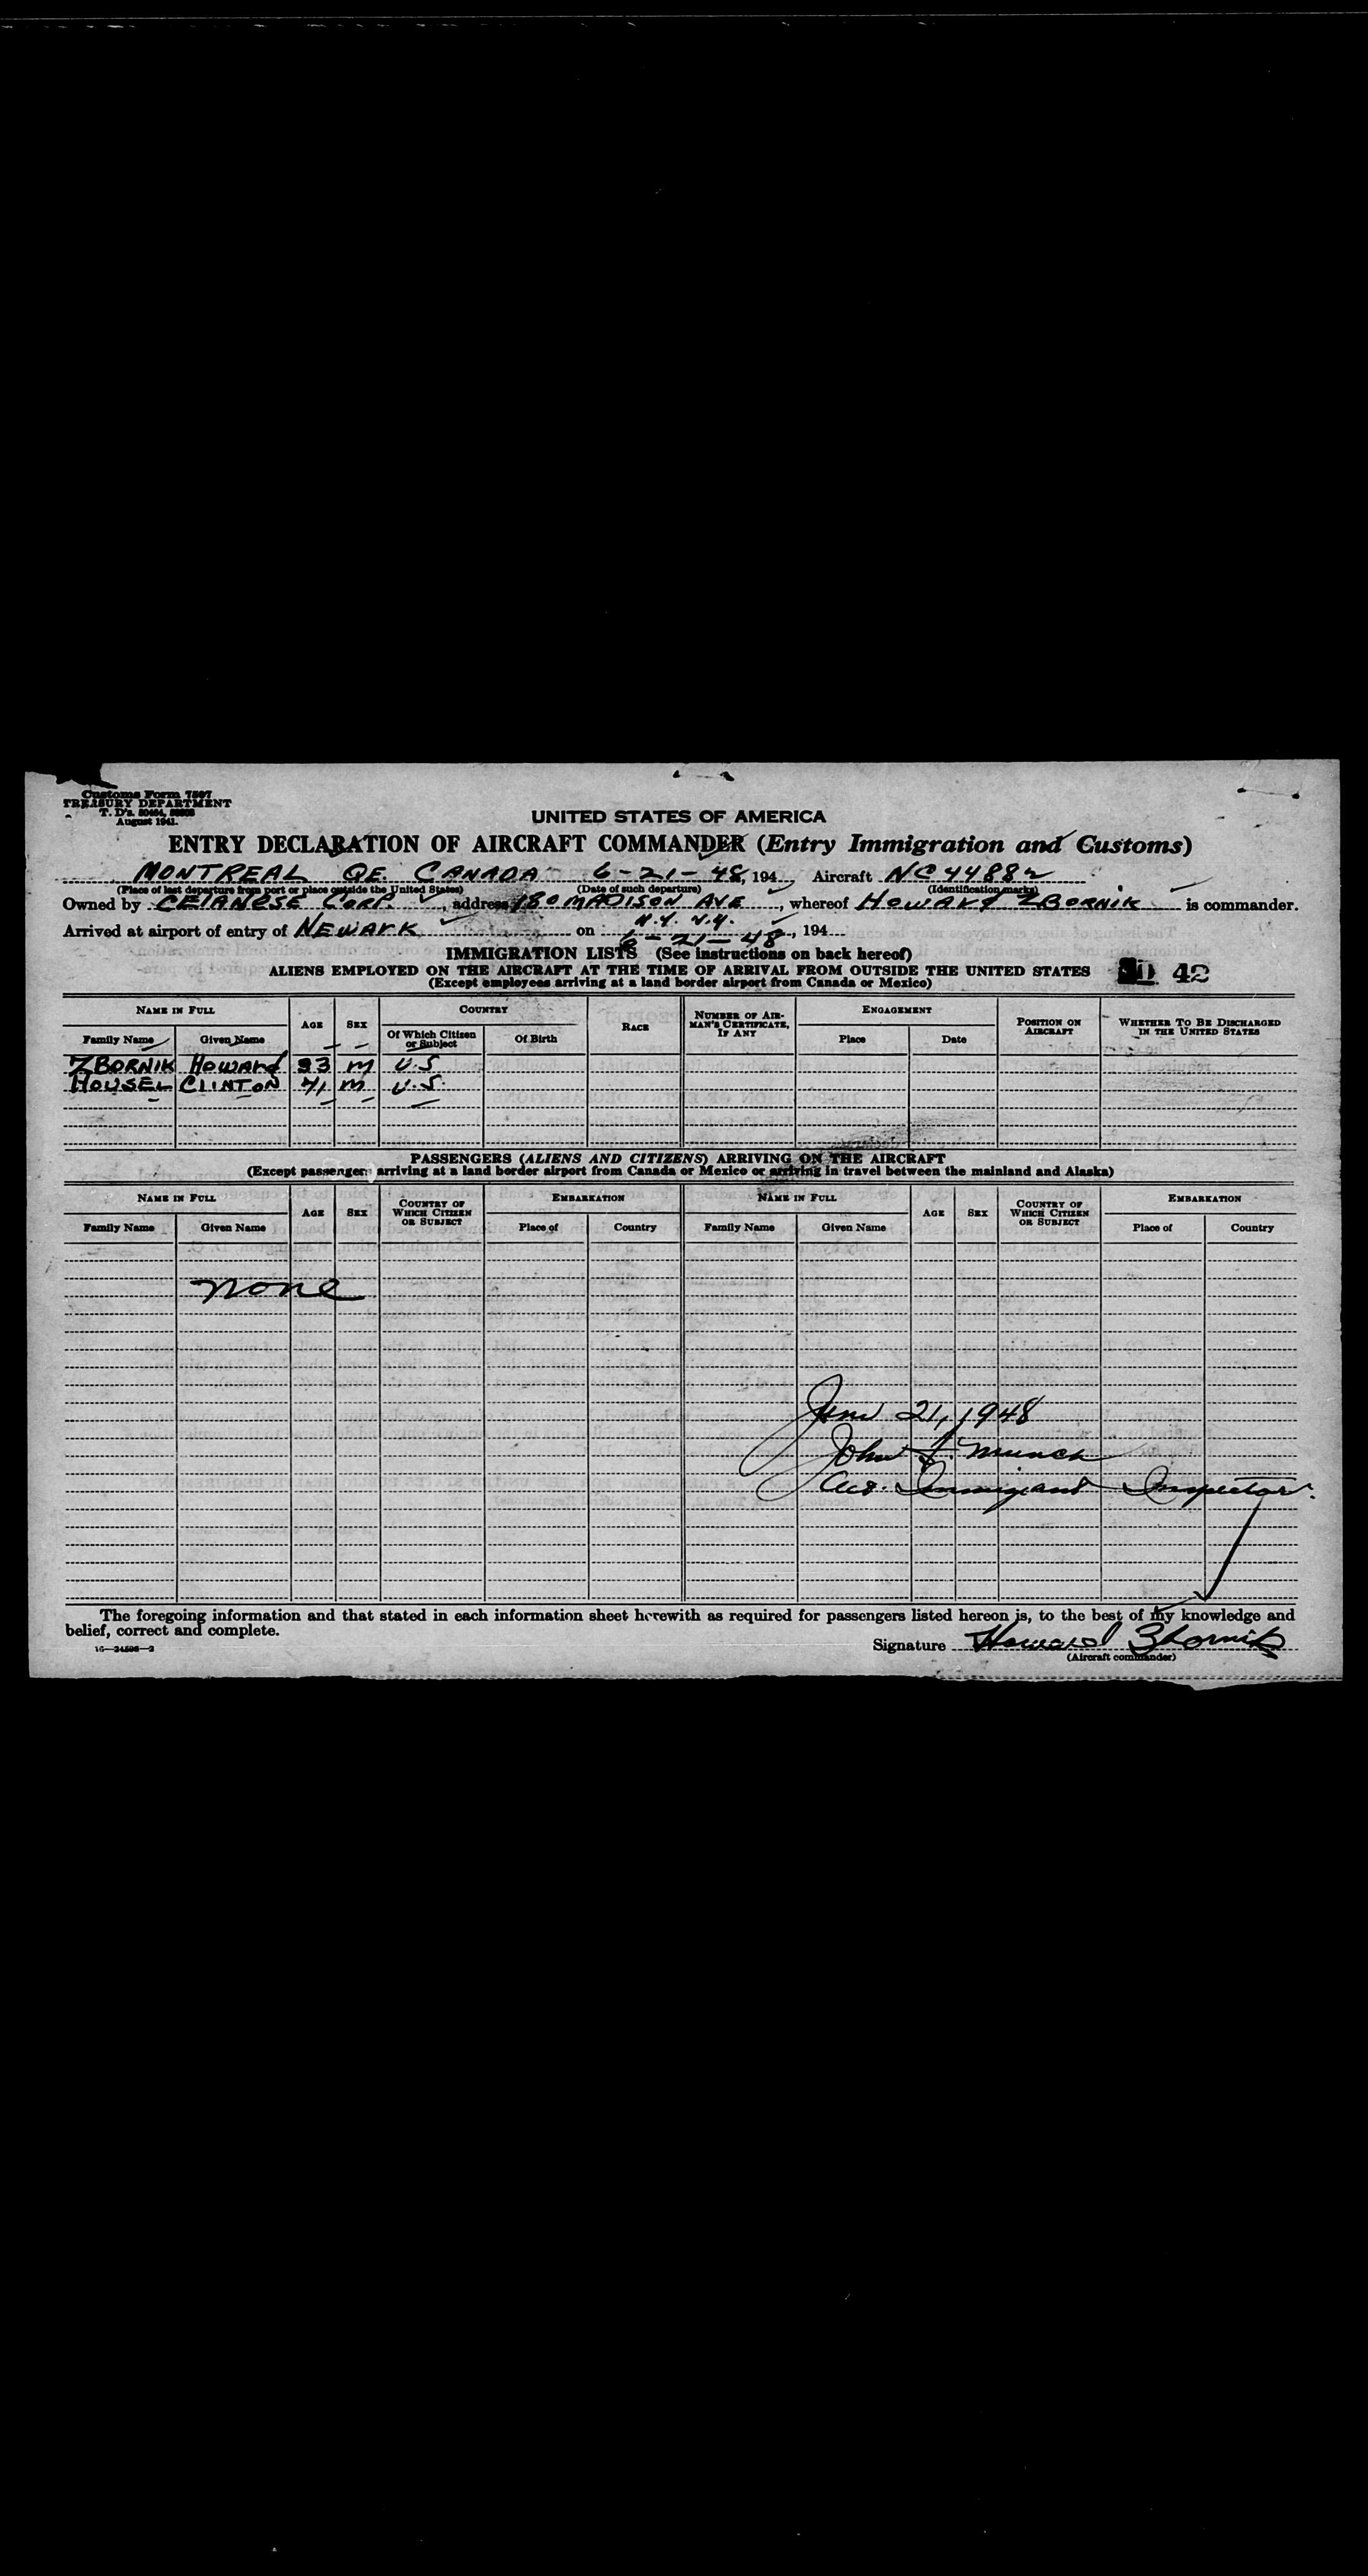 Customs Form 7507
TREASURY DEPARTMENT
T. D's.
August 1941.
UNITED STATES OF AMERICA
ENTRY DECLARATION OF AIRCRAFT COMMANDER (Entry Immigration and Customs)
MONTREAL QE. CANADA 6-21-48, 194 Aircraft NC44882
(Place of last departure from port or place outside the United States) (Date of such departure) (Identification marks)
Owned by CElANESE CORP., address 180 MADISON AVE, whereof HOWARd ZBORNiK is commander.
N.Y. N.Y.
Arrived at airport of entry of NEWARK on 6-21-48, 194
IMMIGRATION LISTS (See instructions on back hereof)
ALIENS EMPLOYED ON THE AIRCRAFT AT THE TIME OF ARRIVAL FROM OUTSIDE THE UNITED STATES 42
(Except employees arriving at a land border airport from Canada or Mexico)
NAME IN FULL AGE SEX COUNTRY RACE NUMBER OF AIRMAN'S CERTIFICATE, IF ANY ENGAGEMENT POSITION ON AIRCRAFT WHETHER TO BE DISCHARGED IN THE UNITED STATES
Family Name Given Name Of Which Citizen or Subject Of Birth Place Date
ZBORNIK HOWARd 33 M U.S
HOUSEL CLINTON 41 M U.S.
PASSENGERS (ALIENS AND CITIZENS) ARRIVING ON THE AIRCRAFT
(Except passengers arriving at a land border airport from Canada or Mexico or arriving in travel between the mainland and Alaska)
NAME IN FULL AGE SEX COUNTRY OF WHICH CITIZEN OR SUBJECT EMBARKATION NAME IN FULL AGE SEX COUNTRY OF WHICH CITIZEN OR SUBJECT EMBARKATION
Family Name Given Name Place of Country Family Name Given Name Place of Country
none
June 21, 1948
John J. Munch
Act. Immigrant Inspector.
The foregoing information and that stated in each information sheet herewith as required for passengers listed hereon is, to the best of my knowledge and
belief, correct and complete.
Signature Howard Zbornik
(Aircraft commander)